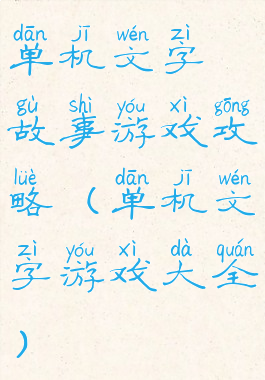 dān jī wén zì
单机文字
gù shì yóu xì gōng
故事游戏攻
lüè dān jī wén
略(单机文
zì yóu xì dà quán
字游戏大全
)